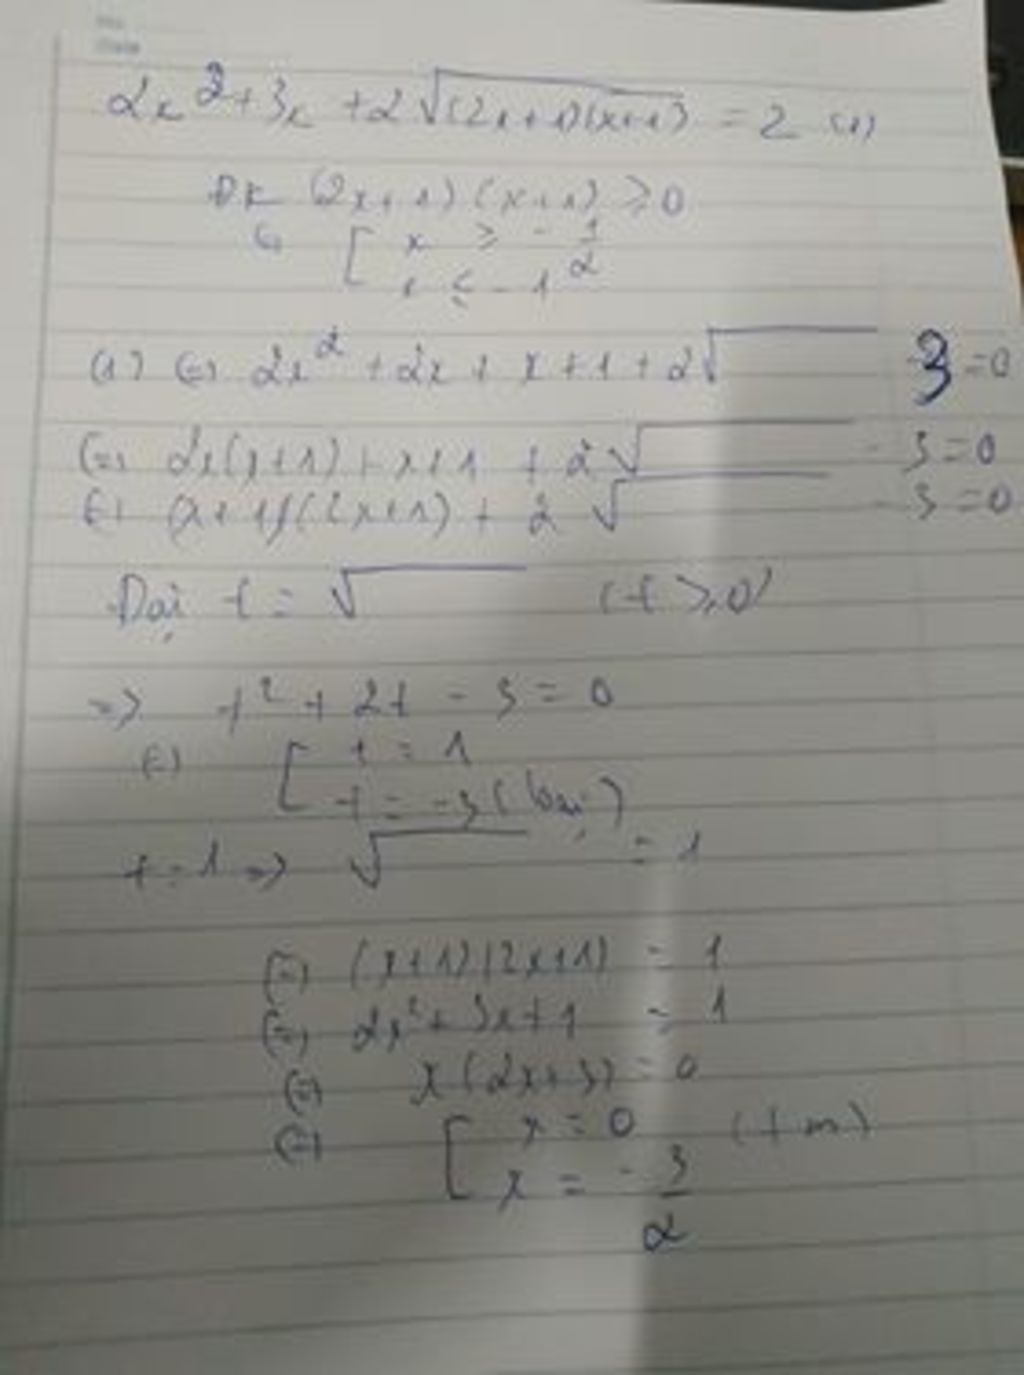 No.
Date
2x² + 3x + 2√(2x+1)(x+1) = 2 (1)
ĐK (2x+1)(x+1) ≥ 0
⇔ [ x ≥ -1/2
x ≤ -1
(1) ⇔ 2x² + 2x + x + 1 + 2√ - 3 = 0
⇔ 2x(x+1) + x+1 + 2√ - 3 = 0
⇔ (x+1)(2x+1) + 2√ - 3 = 0
Đặt t = √ (t ≥ 0)
=> t² + 2t - 3 = 0
⇔ [ t = 1
t = -3 (loại)
t = 1 => √ = 1
⇔ (x+1)(2x+1) = 1
⇔ 2x² + 3x + 1 = 1
⇔ x(2x+3) = 0
⇔ [ x = 0 (tm)
x = -3/2